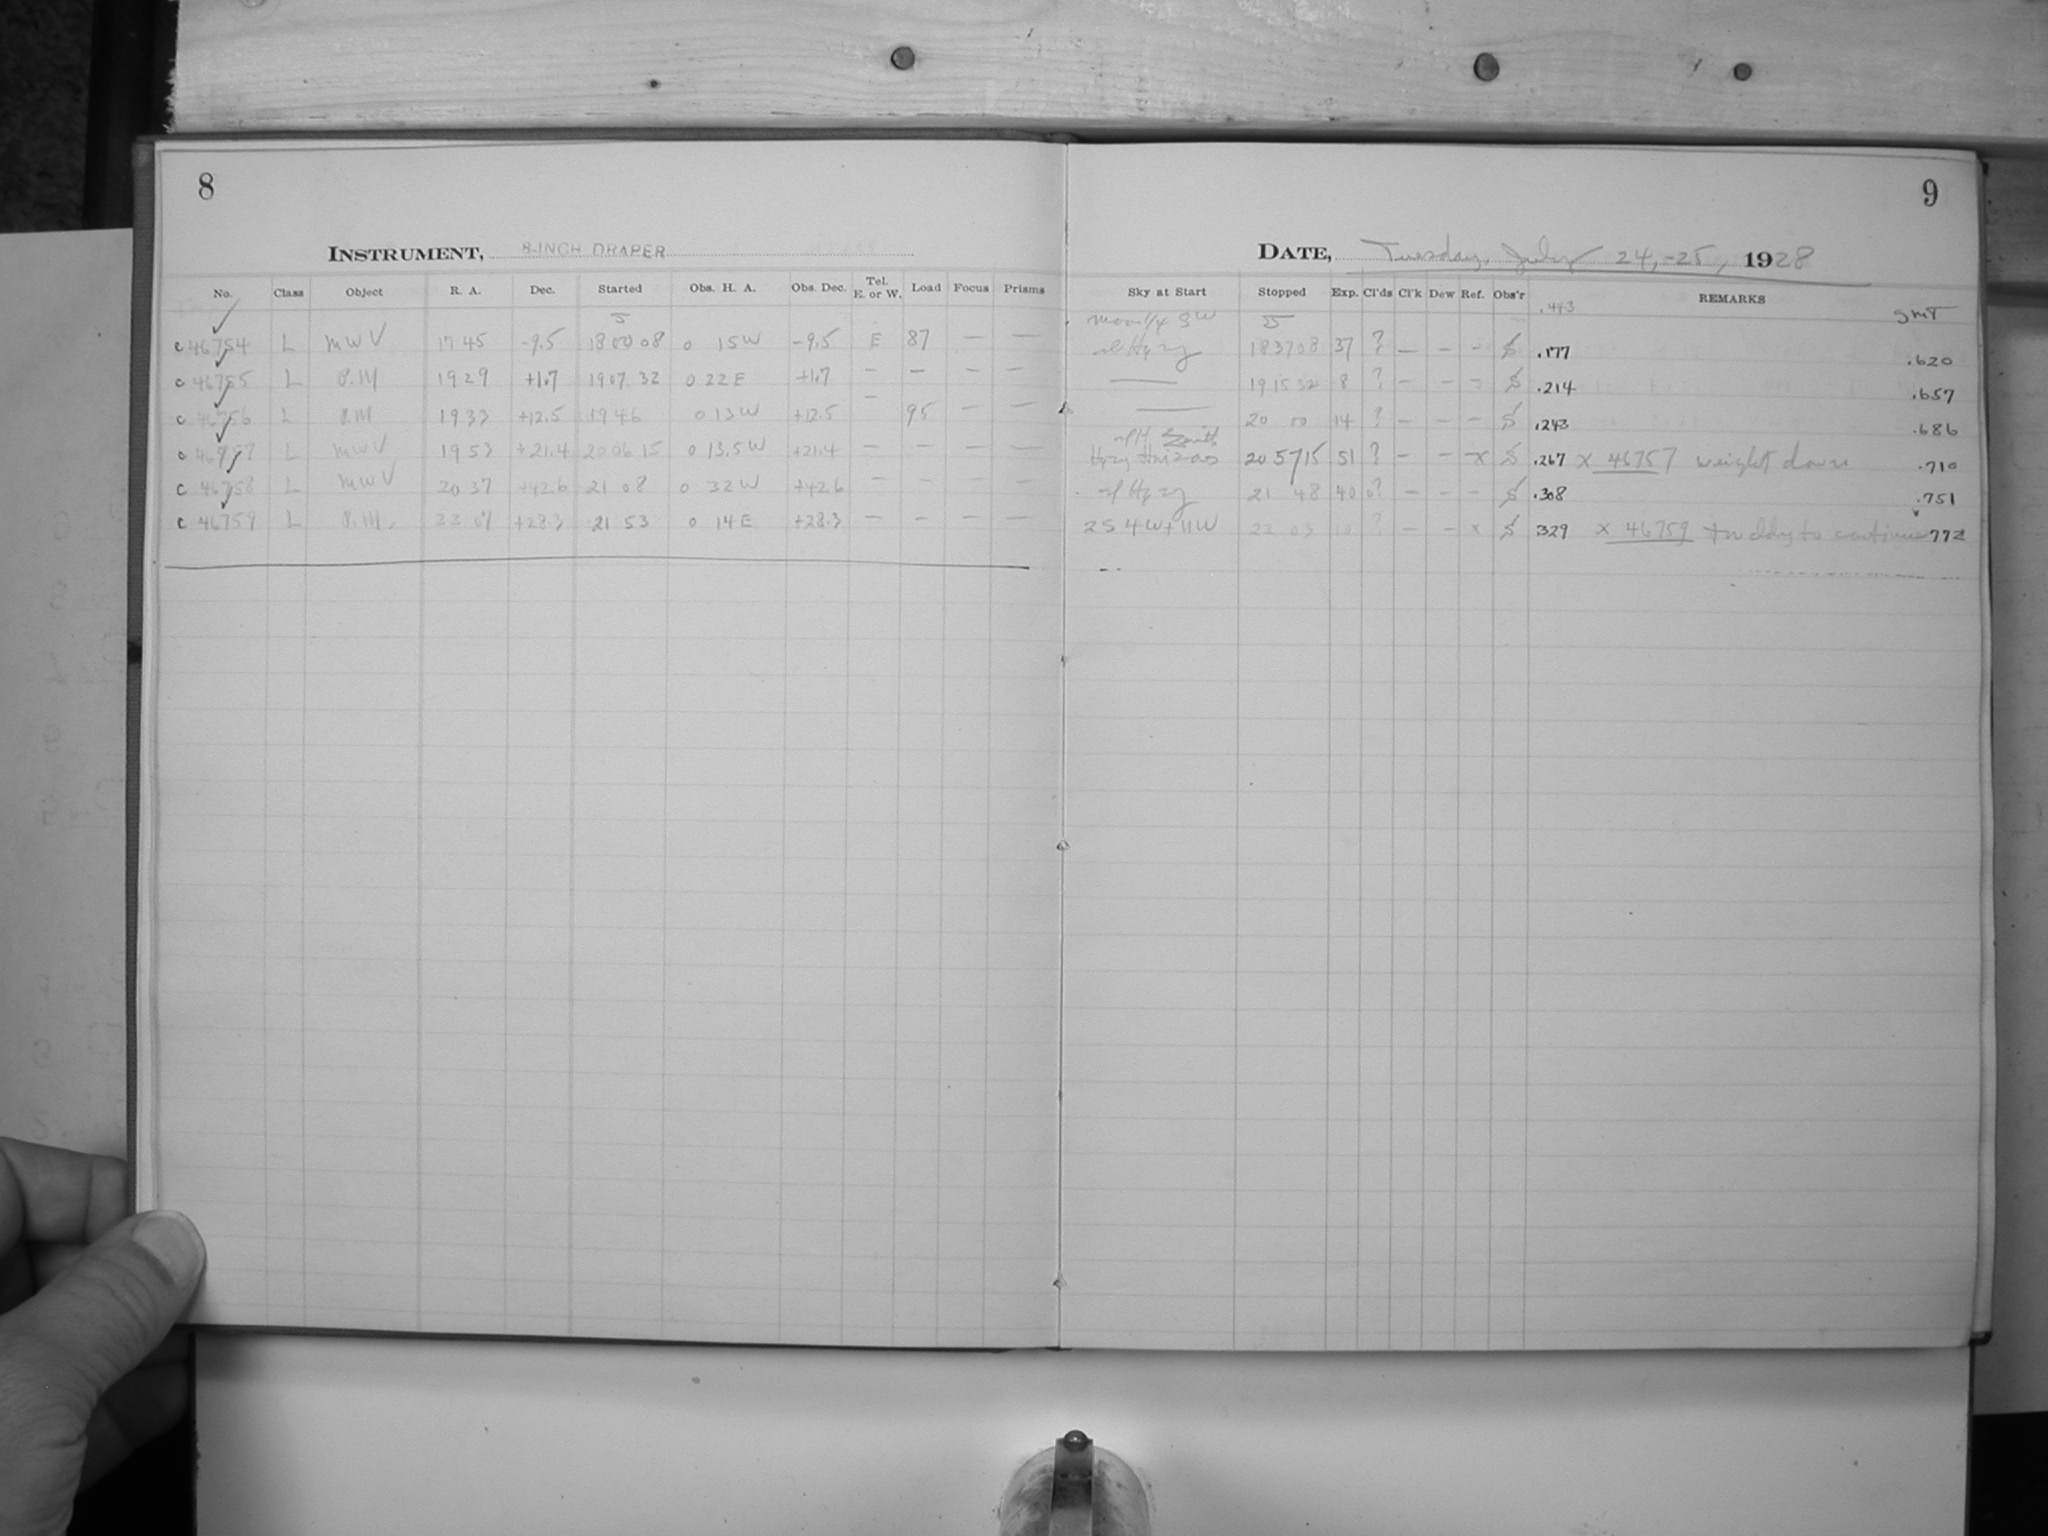 8
9
INSTRUMENT, 8-INCH DRAPER
DATE, Tuesday, July 24,-25, 1928
No. Class Object R. A. Dec. Started Obs. H. A. Obs. Dec. Tel. E. or W. Load Focus Prisms Sky at Start Stopped Exp. Cl'ds Cl'k Dew Ref. Obs'r REMARKS
.443 GMT
c 46754 L MWV 17 45 -9.5 18 00 08 0 15 W -9.5 E 87 — — 18 37 08 37 ? — - - S .177 .620
c 46755 L P.M 19 29 +1.7 19 07 32 0 22 E +1.7 — — — — —— 19 15 32 8 ? — - - S .214 .657
c 46756 L P.M 19 33 +12.5 19 46 0 13 W +12.5 — 95 — — —— 20 00 14 ? — - - S .243 .686
c 46757 L MWV 19 53 +21.4 20 06 15 0 13.5 W +21.4 — — — — Hazy 20 57 15 51 ? — - x S .267 x 46757 weight down .710
c 46758 L MWV 20 37 +42.6 21 08 0 32 W +42.6 — — — — Hazy 21 48 40 ? — - - S .308 .751
c 46759 L P.M. 22 07 +28.3 21 53 0 14 E +28.3 — — — — 22 03 10 ? — - x S 329 x 46759 to continue 772